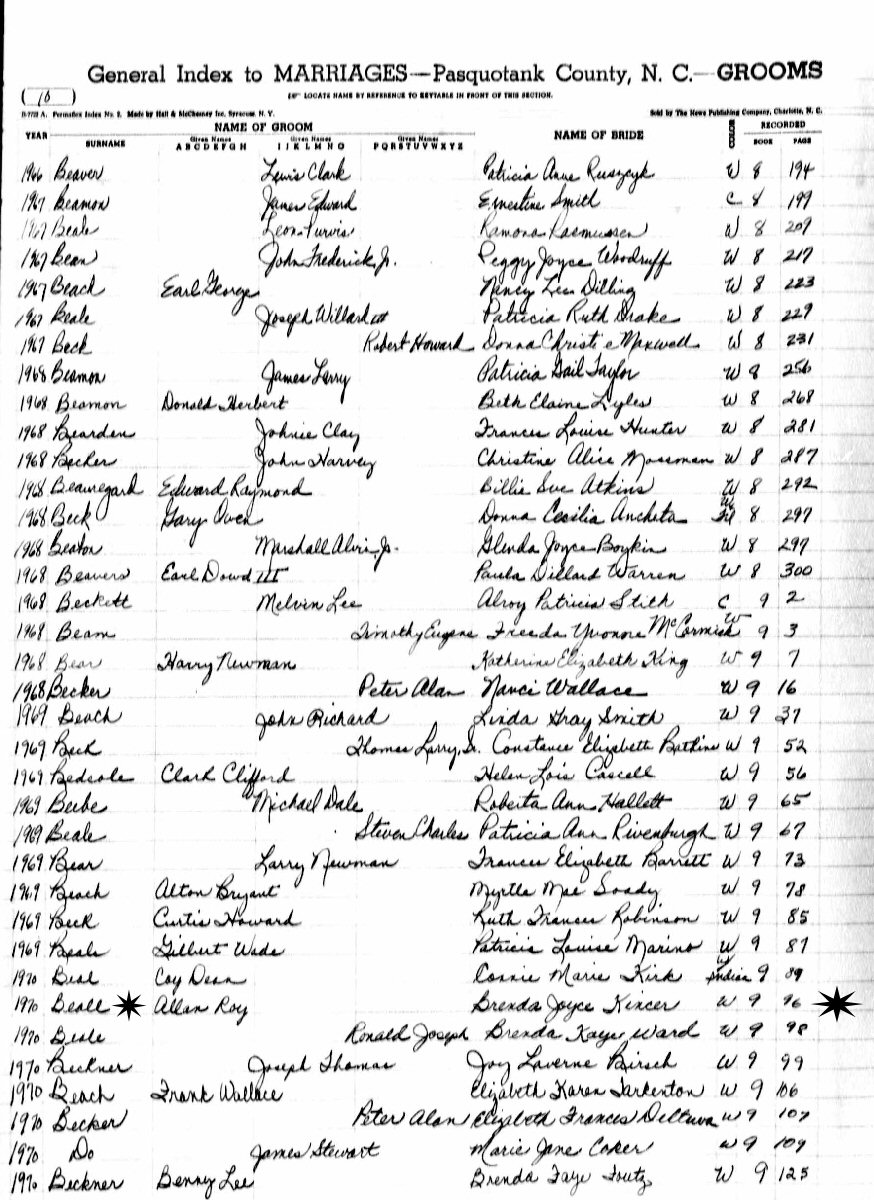 General Index to MARRIAGES—Pasquotank County, N. C.—GROOMS
(10)
LOCATE NAME BY REFERENCE TO KEYTABLE IN FRONT OF THIS SECTION.
Permaflex Index No. 2. Made by Hall & McChesney Inc. Syracuse, N. Y. Sold by The News Publishing Company, Charlotte, N. C.
YEAR NAME OF GROOM NAME OF BRIDE COLOR RECORDED
SURNAME Given Names ABCDEFGH Given Names IJKLMNO Given Names PQRSTUVWXYZ BOOK PAGE
1966 Beaver Lewis Clark Patricia Anne Ruszcyk W 8 194
1967 Beamon James Edward Ernestine Smith C 8 199
1967 Beale Leon Purvis Ramona Rasmussen W 8 209
1967 Bean John Frederick, Jr. Peggy Joyce Woodruff W 8 217
1967 Beach Earl George Nancy Lee Dilling W 8 223
1967 Beale Joseph Willard III Patricia Ruth Drake W 8 229
1967 Beck Robert Howard Donna Christie Maxwell W 8 231
1968 Beamon James Larry Patricia Gail Taylor W 8 256
1968 Beamon Donald Herbert Beth Elaine Lyles W 8 268
1968 Bearden Johnie Clay Frances Louise Hunter W 8 281
1968 Becker John Harvey Christine Alice Mossman W 8 287
1968 Beauregard Edward Raymond Billie Sue Atkins W 8 292
1968 Beck Gary Owen Donna Cecilia Ancheta W 8 297
1968 Beaton Marshall Alvin, Jr. Glenda Joyce Boykin W 8 299
1968 Beavers Earl Dowd III Paula Dillard Warren W 8 300
1968 Beckett Melvin Lee Alroy Patricia Stith C 9 2
1968 Beam Timothy Eugene Freeda Yvonne McCormick W 9 3
1968 Bear Harry Newman Katherine Elizabeth King W 9 7
1968 Becker Peter Alan Nanci Wallace W 9 16
1969 Beach John Richard Linda Gray Smith W 9 37
1969 Beck Thomas Larry, Sr. Constance Elizabeth Batkins W 9 52
1969 Bedsole Clark Clifford Helen Lois Cascell W 9 56
1969 Beebe Michael Dale Roberta Ann Hallett W 9 65
1969 Beale Steven Charles Patricia Ann Rivenburgh W 9 67
1969 Bear Larry Newman Frances Elizabeth Barrett W 9 73
1969 Beach Alton Bryant Myrtle Mae Soady W 9 78
1969 Beck Curtis Howard Ruth Frances Robinson W 9 85
1969 Beals Gilbert Wade Patricia Louise Marino W 9 87
1970 Beal Coy Dean Connie Marie Kirk W Indian 9 89
1970 Beall Allan Roy Brenda Joyce Kincer W 9 96
1970 Beale Ronald Joseph Brenda Kaye Ward W 9 98
1970 Beckner Joseph Thomas Joy Laverne Birsch W 9 99
1970 Beach Frank Wallace Elizabeth Karen Tarkenton W 9 106
1970 Becker Peter Alan Elizabeth Frances W 9 107
1970 Do James Stewart Marie Jane Coker W 9 109
1970 Beckner Benny Lee Brenda Faye Foutz W 9 125